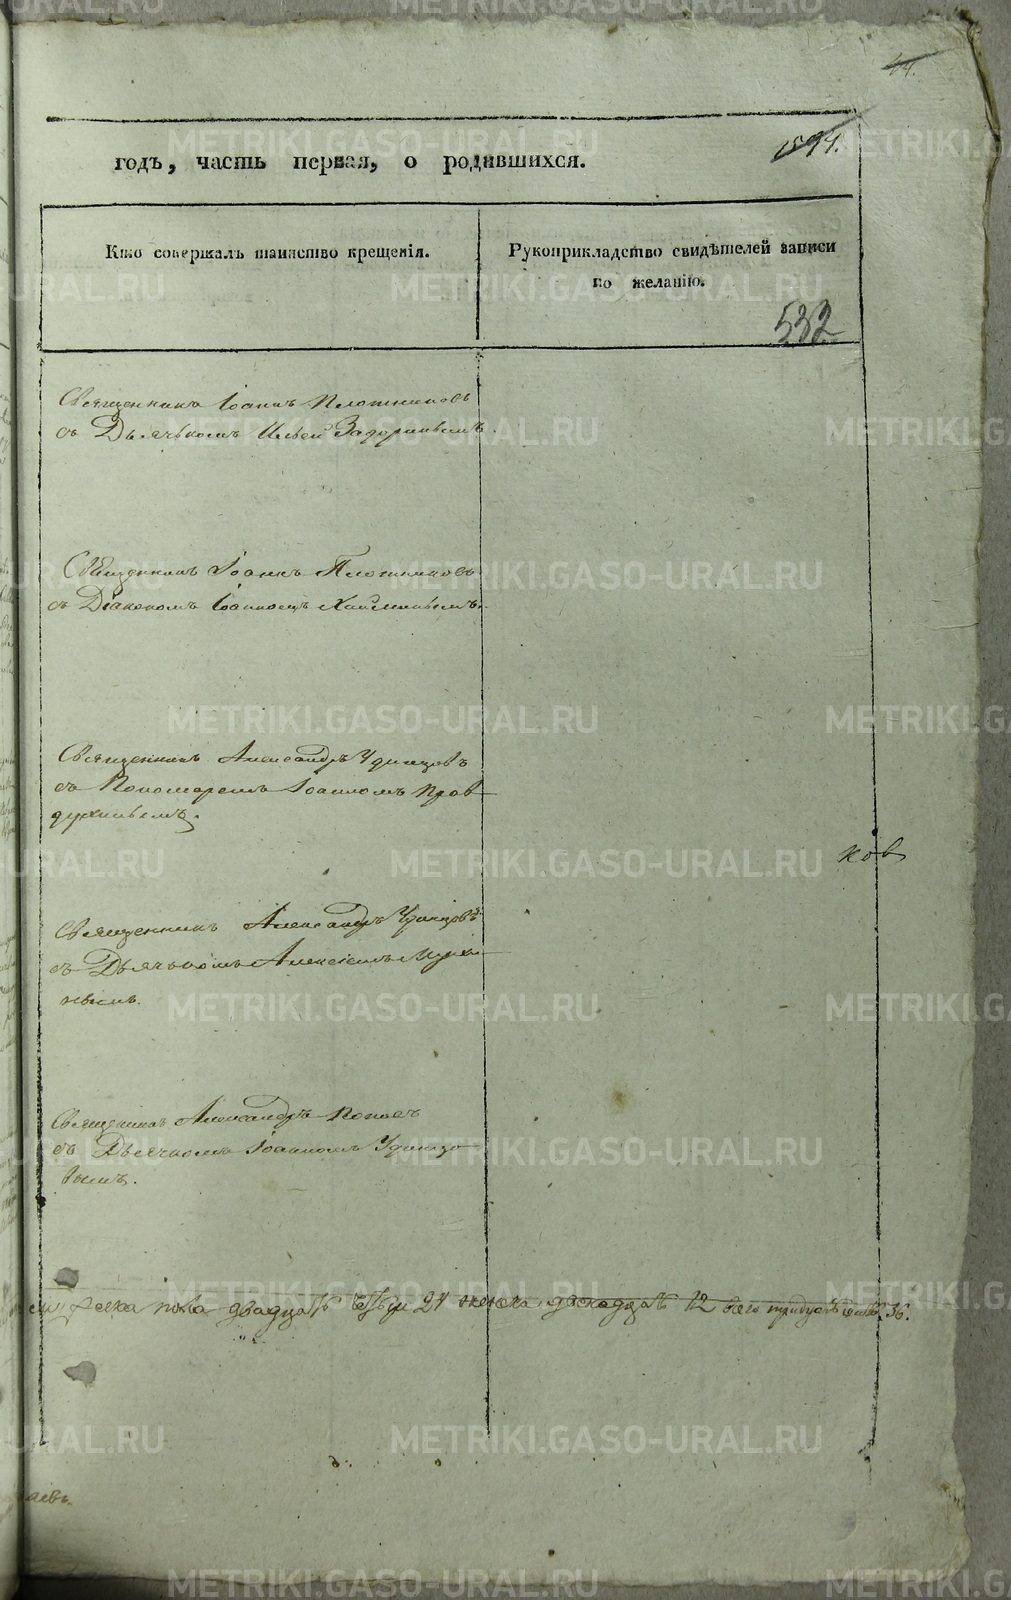 44.
1594.
годъ, часть первая, о родившихся.
Кто совершалъ таинство крещенія.
Рукоприкладство свидѣтелей записи
по желанію.
532
Священникъ Іоаннъ Плотниковъ
съ Дьячькомъ Ильей Задоринымъ.
Священникъ Іоаннъ Плотниковъ
съ Діакономъ Іоанномъ
Священникъ Александръ Удинцовъ
съ Пономаремъ Іоанномъ Прав
духинымъ.
ков
Священникъ Александръ Удинцовъ
съ Дьячькомъ Алексіемъ
нымъ.
Священникъ Александръ Поповъ
съ Дьячкомъ Іоанномъ Удинцо
вымъ.
пола двадцать 24 женска двенадцать 12 всего тридцать шесть 36.
аевъ.
METRIKI.GASO-URAL.RU